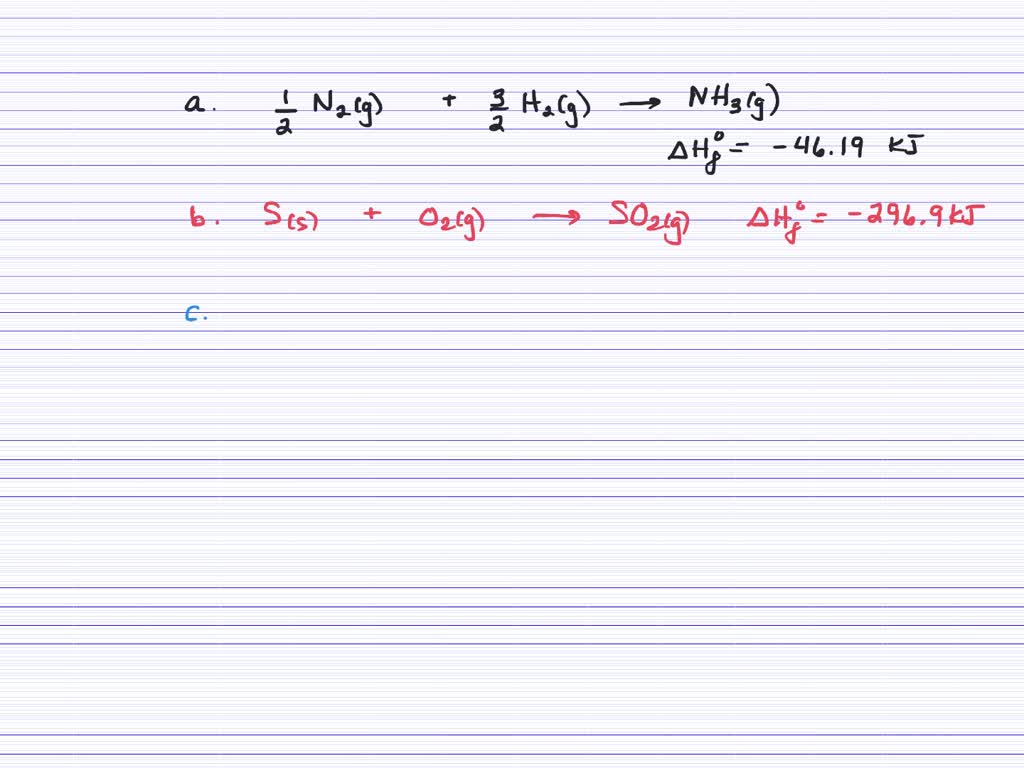 a. 1/2 N₂(g) + 3/2 H₂(g) → NH₃(g)
ΔH°f = -46.19 kJ
b. S(s) + O₂(g) → SO₂(g) ΔH°f = -296.9 kJ
c.